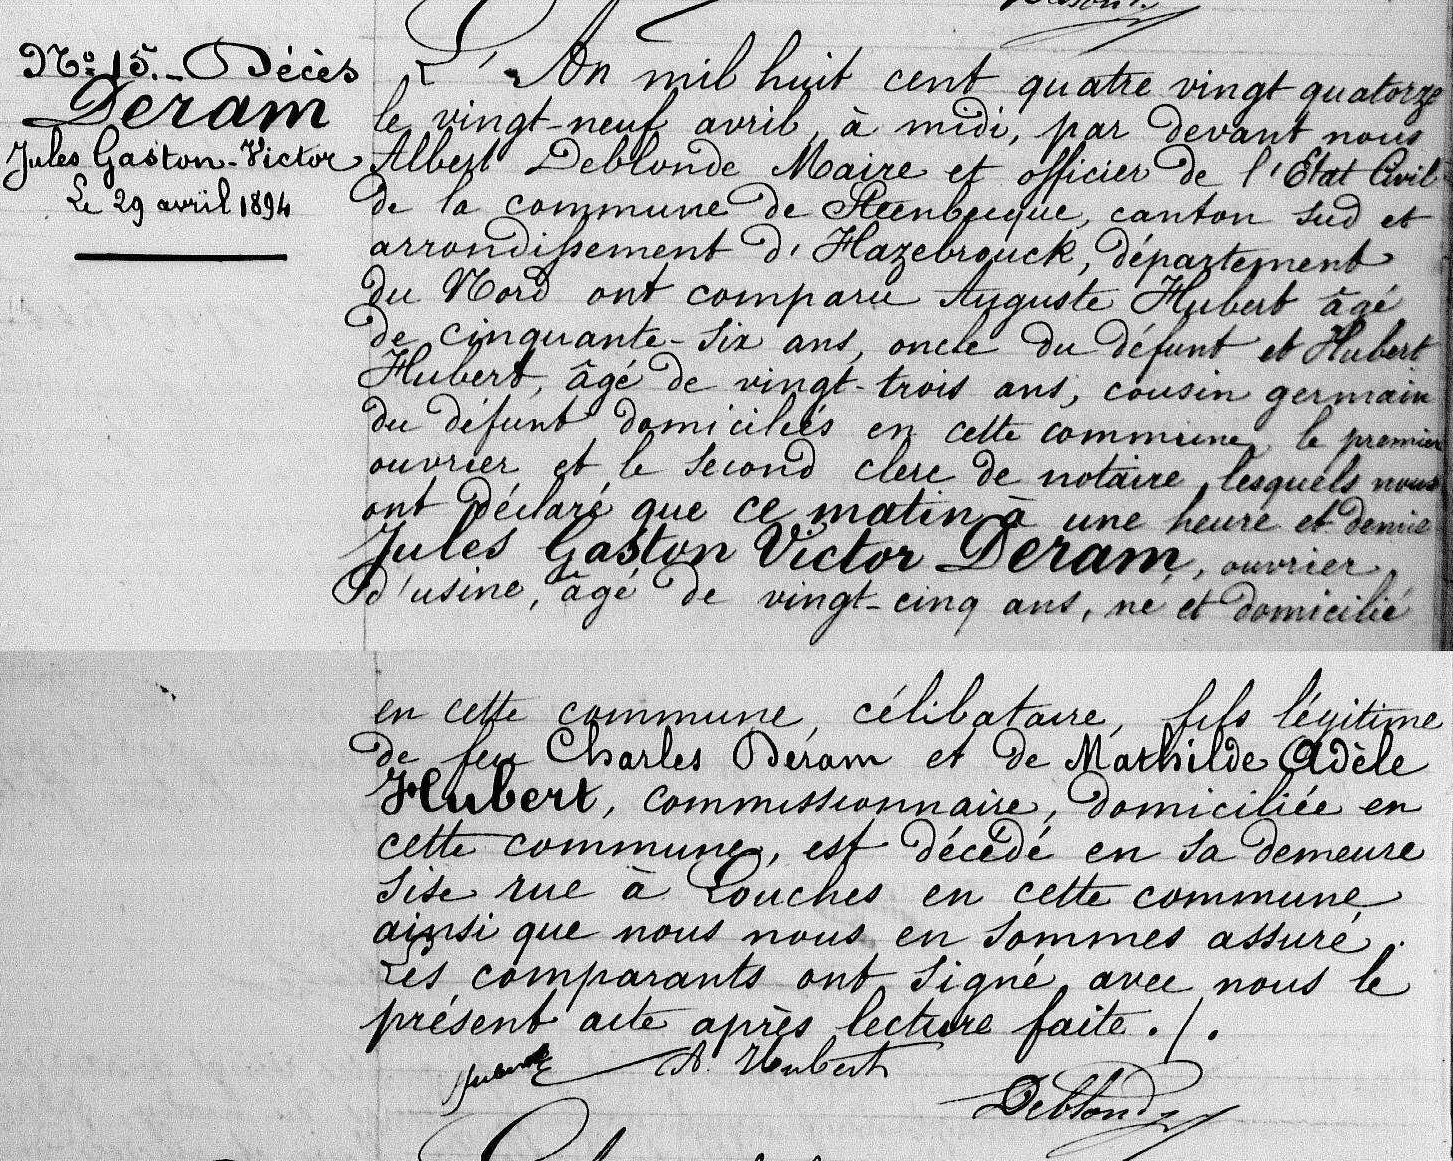 No 15. - Décès
Deram
Jules Gaston-Victor
Le 29 avril 1894
L'An mil huit cent quatre vingt quatorze
le vingt-neuf avril, à midi, par devant nous
Albert Deblonde Maire et officier de l'Etat Civil
de la commune de Steenbecque, canton sud et
arrondissement d'Hazebrouck, département
du Nord ont comparu Auguste Hubert âgé
de cinquante-six ans, oncle du défunt et Hubert
Hubert, âgé de vingt-trois ans, cousin germain
du défunt domiciliés en cette commune, le premier
ouvrier et le second clerc de notaire, lesquels nous
ont déclaré que ce matin à une heure et demie
Jules Gaston Victor Deram, ouvrier
d'usine, âgé de vingt-cinq ans, né et domicilié
en cette commune, célibataire, fils légitime
de feu Charles Deram et de Mathilde Adèle
Hubert, commissionnaire, domiciliée en
cette commune, est décédé en sa demeure
sise rue à Louches en cette commune
ainsi que nous nous en sommes assuré.
Les comparants ont signé avec nous le
présent acte après lecture faite ./.
A. Hubert
Deblonde